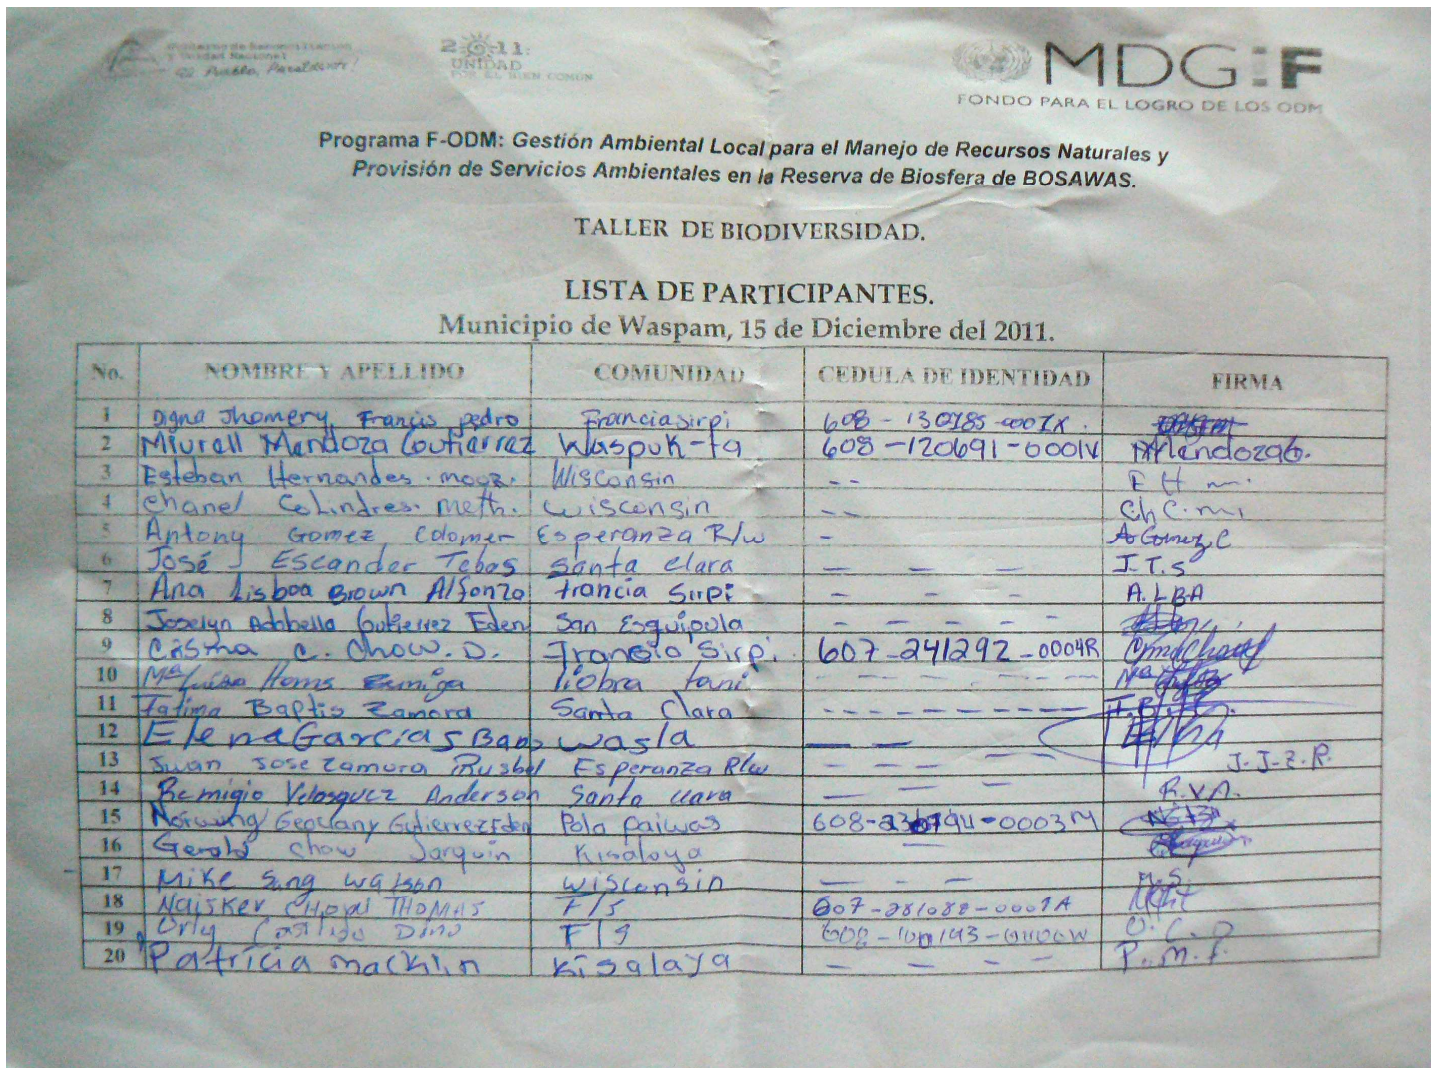 Gobierno de Reconciliación
y Unidad Nacional
El Pueblo, Presidente!
2011:
UNIDAD
POR EL BIEN COMÚN
MDG:F
FONDO PARA EL LOGRO DE LOS ODM
Programa F-ODM: Gestión Ambiental Local para el Manejo de Recursos Naturales y
Provisión de Servicios Ambientales en la Reserva de Biosfera de BOSAWAS.
TALLER DE BIODIVERSIDAD.
LISTA DE PARTICIPANTES.
Municipio de Waspam, 15 de Diciembre del 2011.
No. NOMBRE Y APELLIDO COMUNIDAD CEDULA DE IDENTIDAD FIRMA
1 Digna Jhomery Francis pedro Francia sirpi
2 Miurell Mendoza Gutierrez Waspuk-ta 608-120691-0001V Mendoza G.
3 Esteban Hernandes. mooz. Wisconsin -- E H m.
4 Chanel Colindres. meth. wisconsin -- Ch C. m.
5 Antony Gomez Colomer Esperanza R/w - A Gomez C
6 José J Escander Tebas Santa Clara - - - J.T.S
7 Ana Lisboa Brown Alfonzo francia Sirpi - - - A.L.B.A
8 Joselyn Gutierrez Eden San Esquipula - - - - -
9 C. Chow. D. Francia Sirpi 607-241292-0004R
10 Mª Luisa Homs tani
11 Fatima Baptis Zamora Santa Clara - - - - - - - - -
12 Elena Garcias Bans wasla - -
13 Juan Jose Zamora Esperanza R/w - - - - J.J.Z.R.
14 Remigio Velasquez Anderson Santa Clara - - - R.V.A.
15 Gutierrez Eden Pola paiwas
16 Gerald Chow Jarquin Kisalaya -
17 Mike Sang watson wisconsin - - - M.S.
18 Naisker CHOW THOMAS F/S 607-281088-0001A
19 Orly Castillo F/S O. C. D
20 Patricia macklin Kisalaya - - - - P. M. F.